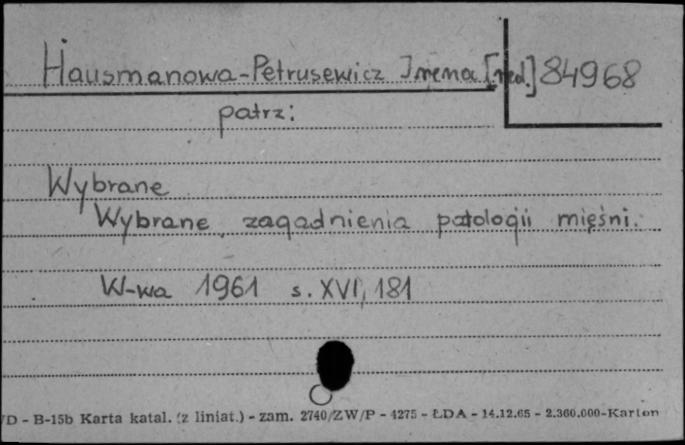 Hausmanowa-Petrusewicz Irena [red.] 84968
patrz:
Wybrane
Wybrane zagadnienia patologii mięśni.
W-wa 1961 s. XVI, 181
/D - B-15b Karta katal. (z liniat.) - zam. 2740/ZW/P - 4275 - ŁDA - 14.12.65 - 2.360.000-Karton